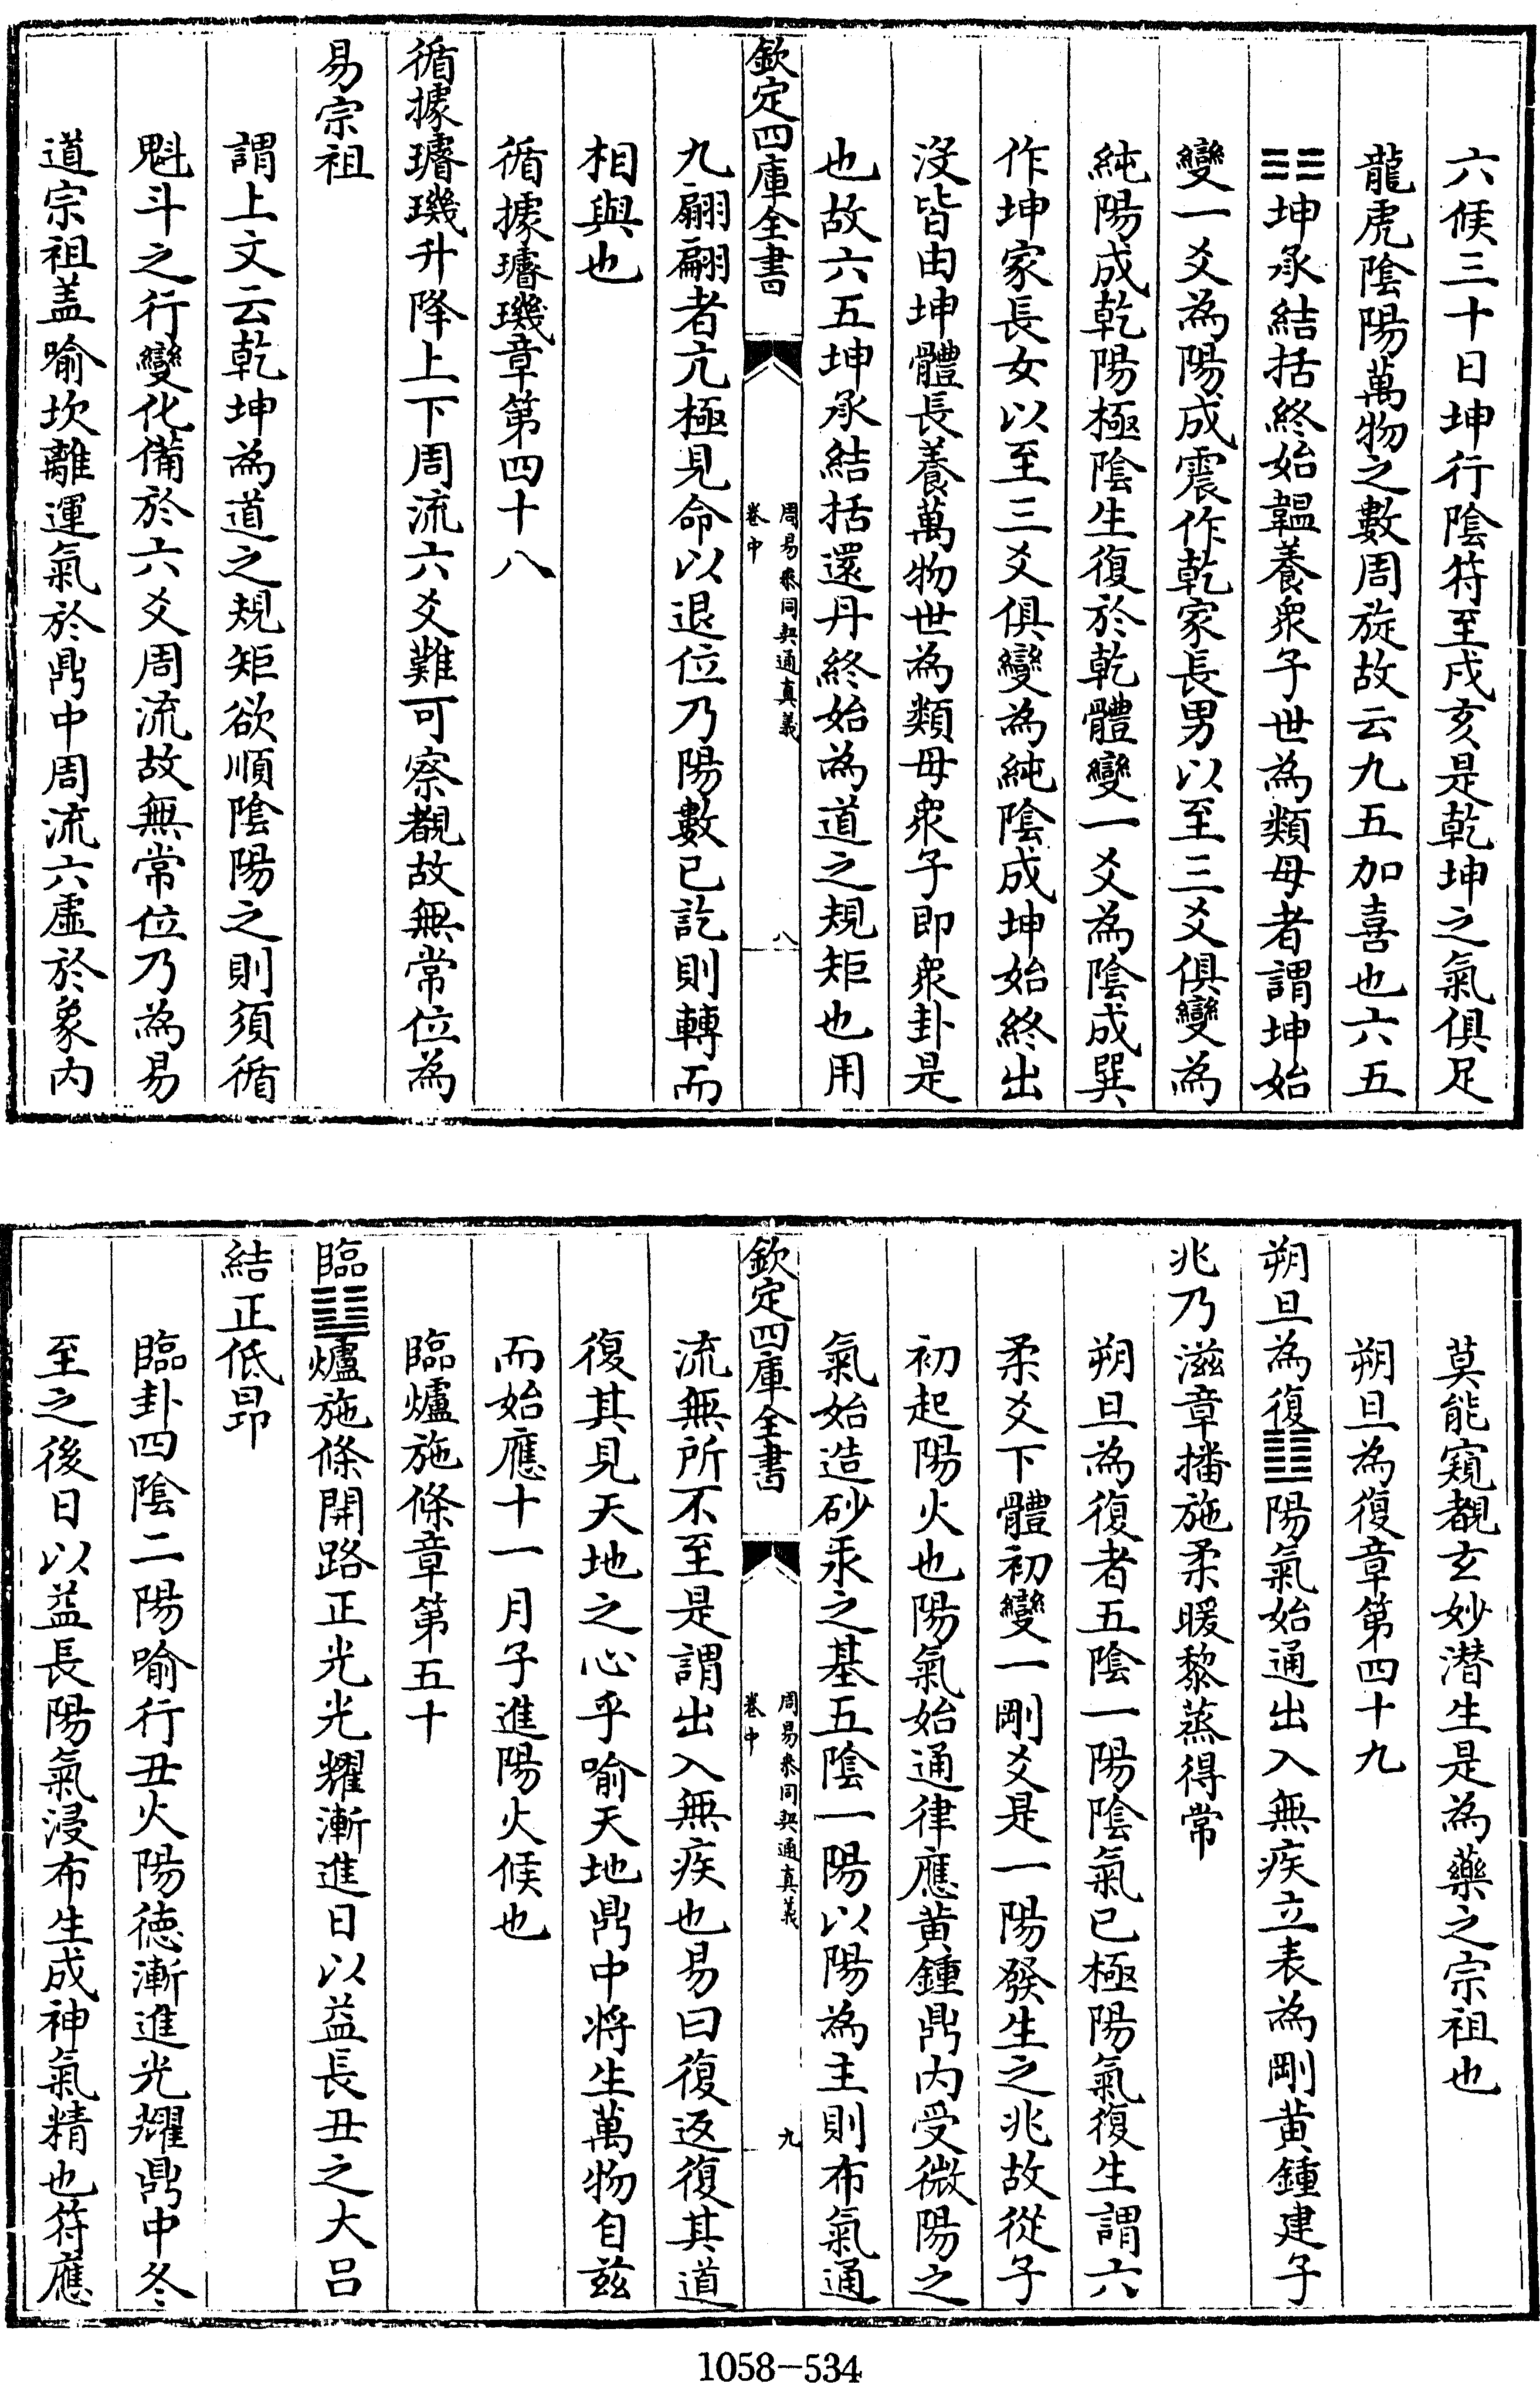 六候三十日坤行陰符至戌亥是乾坤之氣俱足
龍虎陰陽萬物之數周旋故云九五加喜也六五
☷坤承結括終始韞養衆子世為類母者謂坤始
變一爻為陽成震作乾家長男以至三爻俱變為
純陽成乾陽極陰生復於乾體變一爻為陰成巽
作坤家長女以至三爻俱變為純陰成坤始終出
沒皆由坤體長養萬物世為類母衆子即衆卦是
也故六五坤承結括還丹終始為道之規矩也用
欽定四庫全書
周易參同契通真義
卷中
八
九翩翩者亢極見命以退位乃陽數已訖則轉而
相與也
循據璿璣章第四十八
循據璿璣升降上下周流六爻難可察覩故無常位為
易宗祖
謂上文云乾坤為道之規矩欲順陰陽之則須循
魁斗之行變化備於六爻周流故無常位乃為易
道宗祖盖喻坎離運氣於鼎中周流六虛於象內
莫能窺覩玄妙潜生是為藥之宗祖也
朔旦為復章第四十九
朔旦為復䷗陽氣始通出入無疾立表為剛黄鍾建子
兆乃滋章播施柔暖黎蒸得常
朔旦為復者五陰一陽陰氣已極陽氣復生謂六
柔爻下體初變一剛爻是一陽發生之兆故從子
初起陽火也陽氣始通律應黄鍾鼎内受微陽之
氣始造砂汞之基五陰一陽以陽為主則布氣通
欽定四庫全書
周易參同契通真義
卷中
九
流無所不至是謂出入無疾也易曰復返復其道
復其見天地之心乎喻天地鼎中将生萬物自兹
而始應十一月子進陽火候也
臨爐施條章第五十
臨䷒爐施條開路正光光耀漸進日以益長丑之大吕
結正低昂
臨卦四陰二陽喻行丑火陽徳漸進光耀鼎中冬
至之後日以益長陽氣浸布生成神氣精也符應
1058-534